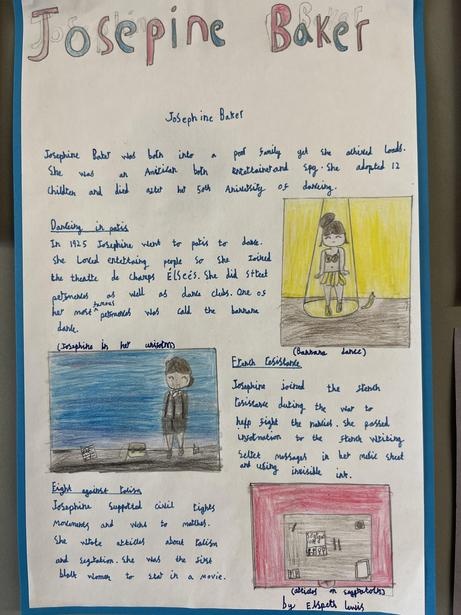 Josepine Baker
Josephine Baker
Josephine Baker was born into a poor family yet she achived loads.
She was an American born entertainer and spy. She adopted 12
children and did after her 50th Aniversity of dancing.
Dancing in paris
In 1925 Josephine went to paris to dance.
She Loved entertaing people so she Joined
the theatre de champs Élseés. She did street
petomences as well as dance clubs. One of
her most famous petomences was calld the banana
dance.
(Banana dance)
(Josephine in her uniform)
French resistance
Josephine joined the french
resistance during the war to
help fight the nazies. she passed
information to the french writing
secret messages in her music sheet
and using invisible ink.
Fight against racism
Josephine supported civil rights
movements and went to matches.
She wrote articles about racism
and segration. She was the first
black women to star in a movie.
(articles on
by Elspeth Lewis